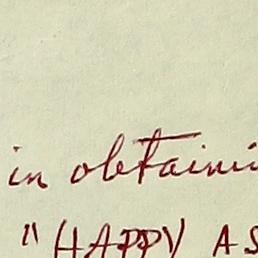 in obtaini
"HAPPY AS